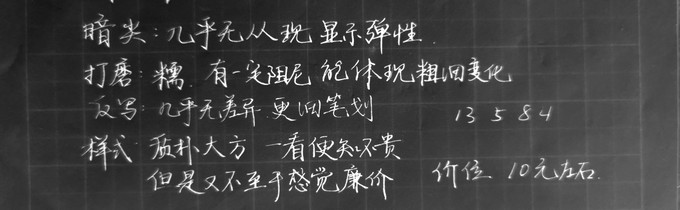 暗尖：几乎无从现显示弹性.
打磨：糯. 有一定阻尼 能体现粗细变化
反写：几乎无差异 更细笔划
13 5 8 4
样式：质朴大方 一看便知不贵
但是又不至于感觉廉价
价位 10元左右.